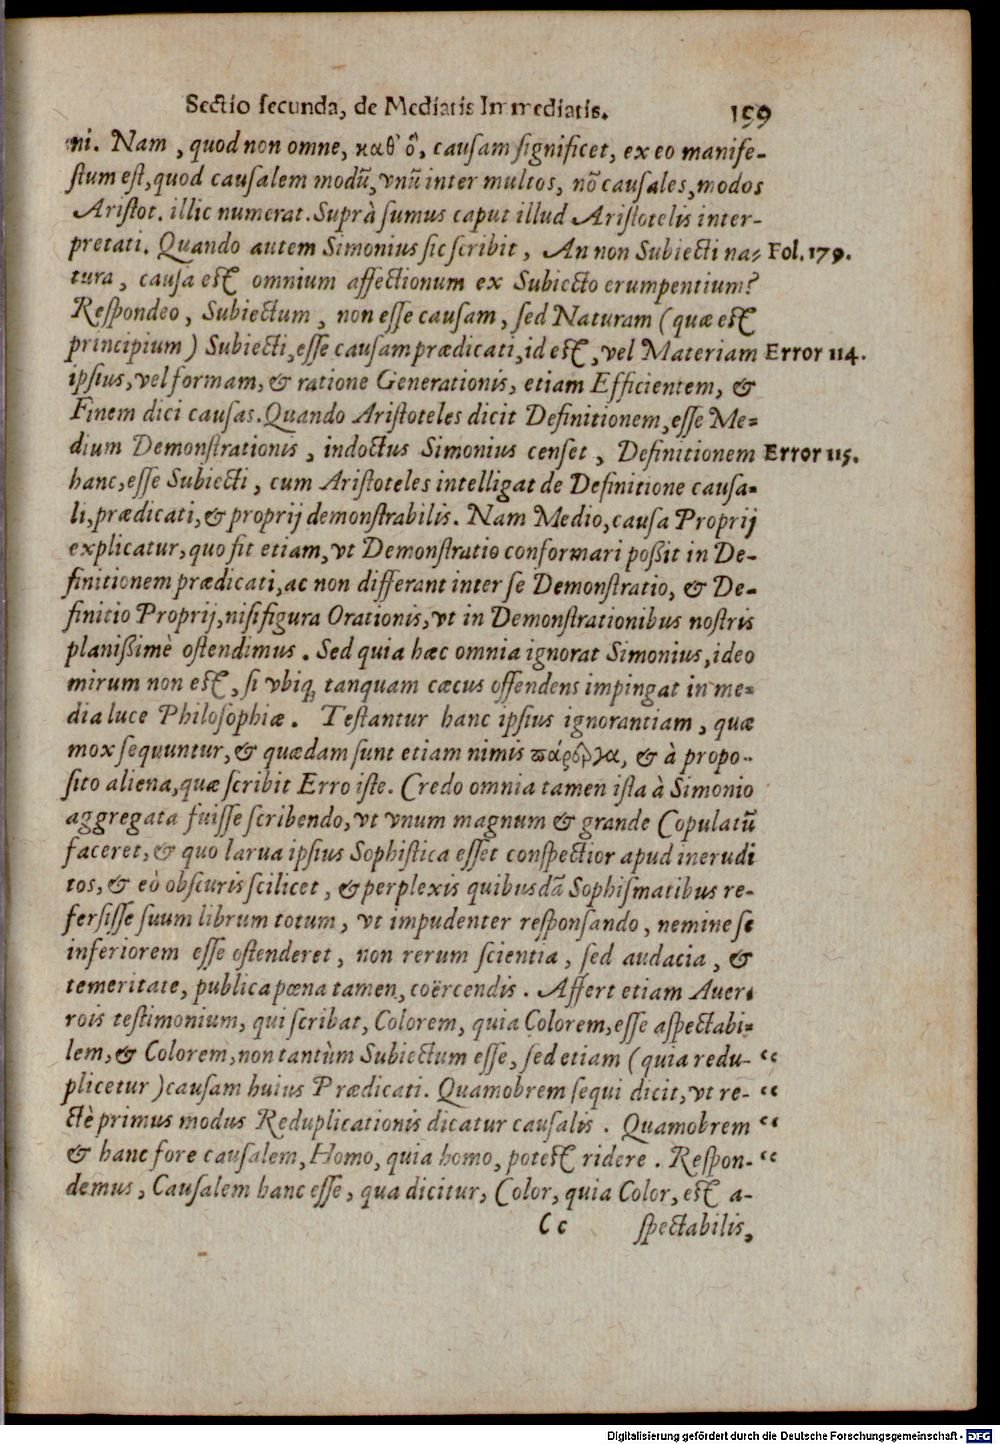 Sectio secunda, de Mediatis Immediatis. 159
ni. Nam, quod non omne, καθ' ὃ, causam significet, ex eo manife-
stum est, quod causalem modũ, vnũ inter multos, nõ causales, modos
Aristot. illic numerat. Suprà sumus caput illud Aristotelis inter-
pretati. Quando autem Simonius sic scribit, An non Subiecti na- Fol. 179.
tura, causa est omnium affectionum ex Subiecto erumpentium?
Respondeo, Subiectum, non esse causam, sed Naturam (quæ est
principium) Subiecti, esse causam prædicati, id est, vel Materiam Error 114.
ipsius, vel formam, & ratione Generationis, etiam Efficientem, &
Finem dici causas. Quando Aristoteles dicit Definitionem, esse Me-
dium Demonstrationis, indoctus Simonius censet, Definitionem Error 115.
hanc, esse Subiecti, cum Aristoteles intelligat de Definitione causa-
li, prædicati, & proprij demonstrabilis. Nam Medio, causa Proprij
explicatur, quo fit etiam, vt Demonstratio conformari poßit in De-
finitionem prædicati, ac non differant inter se Demonstratio, & De-
finitio Proprij, nisi figura Orationis, vt in Demonstrationibus nostris
planißimè ostendimus. Sed quia hæc omnia ignorat Simonius, ideo
mirum non est, si vbiq; tanquam cæcus offendens impingat in me-
dia luce Philosophiæ. Testantur hanc ipsius ignorantiam, quæ
mox sequuntur, & quædam sunt etiam nimis πάρεργα, & à propo-
sito aliena, quæ scribit Erro iste. Credo omnia tamen ista à Simonio
aggregata fuisse scribendo, vt vnum magnum & grande Copulatũ
faceret, & quo larua ipsius Sophistica esset conspectior apud inerudi
tos, & eò obscuris scilicet, & perplexis quibusdã Sophismatibus re-
fersisse suum librum totum, vt impudenter responsando, nemine se
inferiorem esse ostenderet, non rerum scientia, sed audacia, &
temeritate, publica pœna tamen, coërcendis. Affert etiam Auer-
rois testimonium, qui scribat, Colorem, quia Colorem, esse aspectabi-
lem, & Colorem, non tantùm Subiectum esse, sed etiam (quia redu- “
plicetur) causam huius Prædicati. Quamobrem sequi dicit, vt re- “
ctè primus modus Reduplicationis dicatur causalis. Quamobrem “
& hanc fore causalem, Homo, quia homo, potest ridere. Respon- “
demus, Causalem hanc esse, qua dicitur, Color, quia Color, est a-
Cc spectabilis,
Digitalisierung gefördert durch die Deutsche Forschungsgemeinschaft - DFG